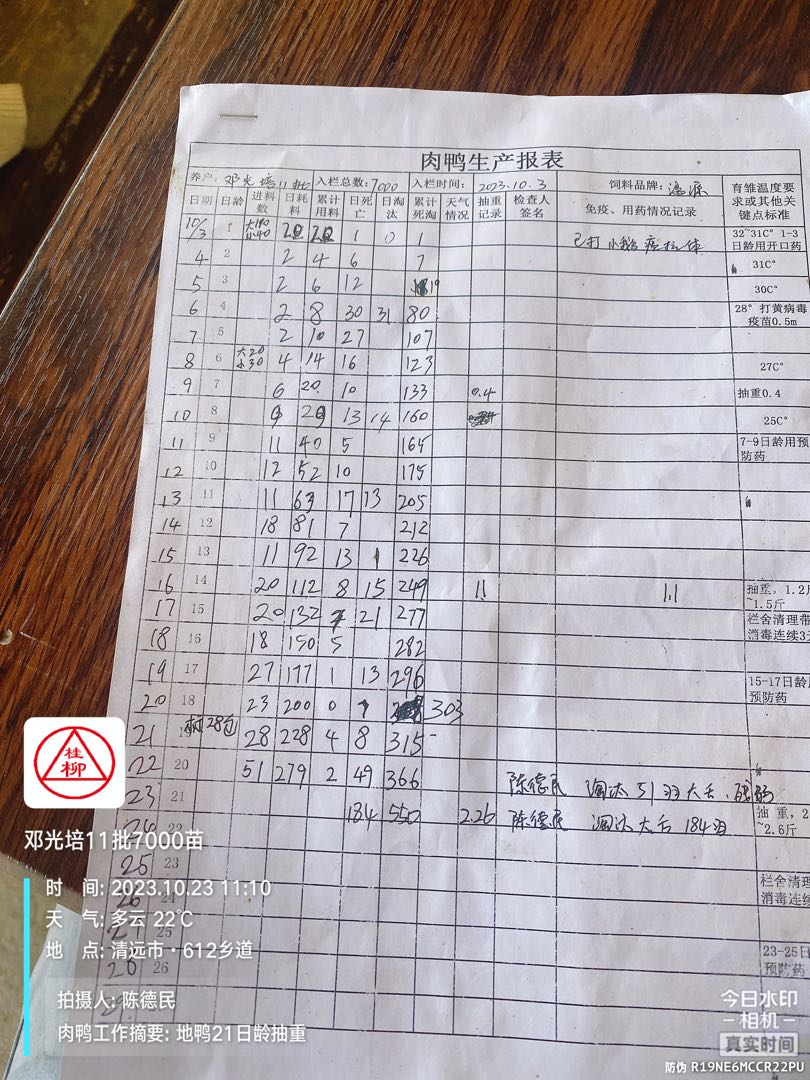 肉鸭生产报表
养户: 邓光培11批 入栏总数: 7000 入栏时间: 2023.10.3 饲料品牌: 温源 育雏温度要求或其他关键点标准
日期 日龄 进料数 日耗料 累计用料 日死亡 日淘汰 累计死淘 天气情况 抽重记录 检查人签名 免疫、用药情况记录
10/3 1 小40 1 0 1 已打小鹅瘟抗体 32~31C° 1-3日龄用开口药
4 2 2 4 6 7 31C°
5 3 2 6 12 19 30C°
6 4 2 8 30 31 80 28° 打黄病毒疫苗0.5m
7 5 2 10 27 107
8 6 大20 小30 4 14 16 123 27C°
9 7 6 20 10 133 0.4 抽重0.4
10 8 9 29 13 14 160 25C°
11 9 11 40 5 165 7-9日龄用预防药
12 10 12 52 10 175
13 11 11 63 17 13 205
14 12 18 81 7 212
15 13 11 92 13 1 226
16 14 20 112 8 15 249 1.1 1.1 抽重，1.2斤~1.5斤
17 15 20 132 7 21 277 栏舍清理带消毒连续3天
18 16 18 150 5 282
19 17 27 177 1 13 296 15-17日龄用预防药
20 18 23 200 0 303
21 19 28包 28 228 4 8 315
22 20 51 279 2 49 366 陈德民 淘汰51羽大舌、
23 21 184 550 2.26 陈德民 淘汰大舌184羽 抽重，2 ~2.6斤
24 22
25 23 栏舍清理 消毒连续
26 24
27 25 23-25日 预防药
28 26
29
桂柳
邓光培11批7000苗
时 间: 2023.10.23 11:10
天 气: 多云 22℃
地 点: 清远市·612乡道
拍摄人: 陈德民
肉鸭工作摘要: 地鸭21日龄抽重
今日水印
-相机-
真实时间
防伪 R19NE6MCCR22PU